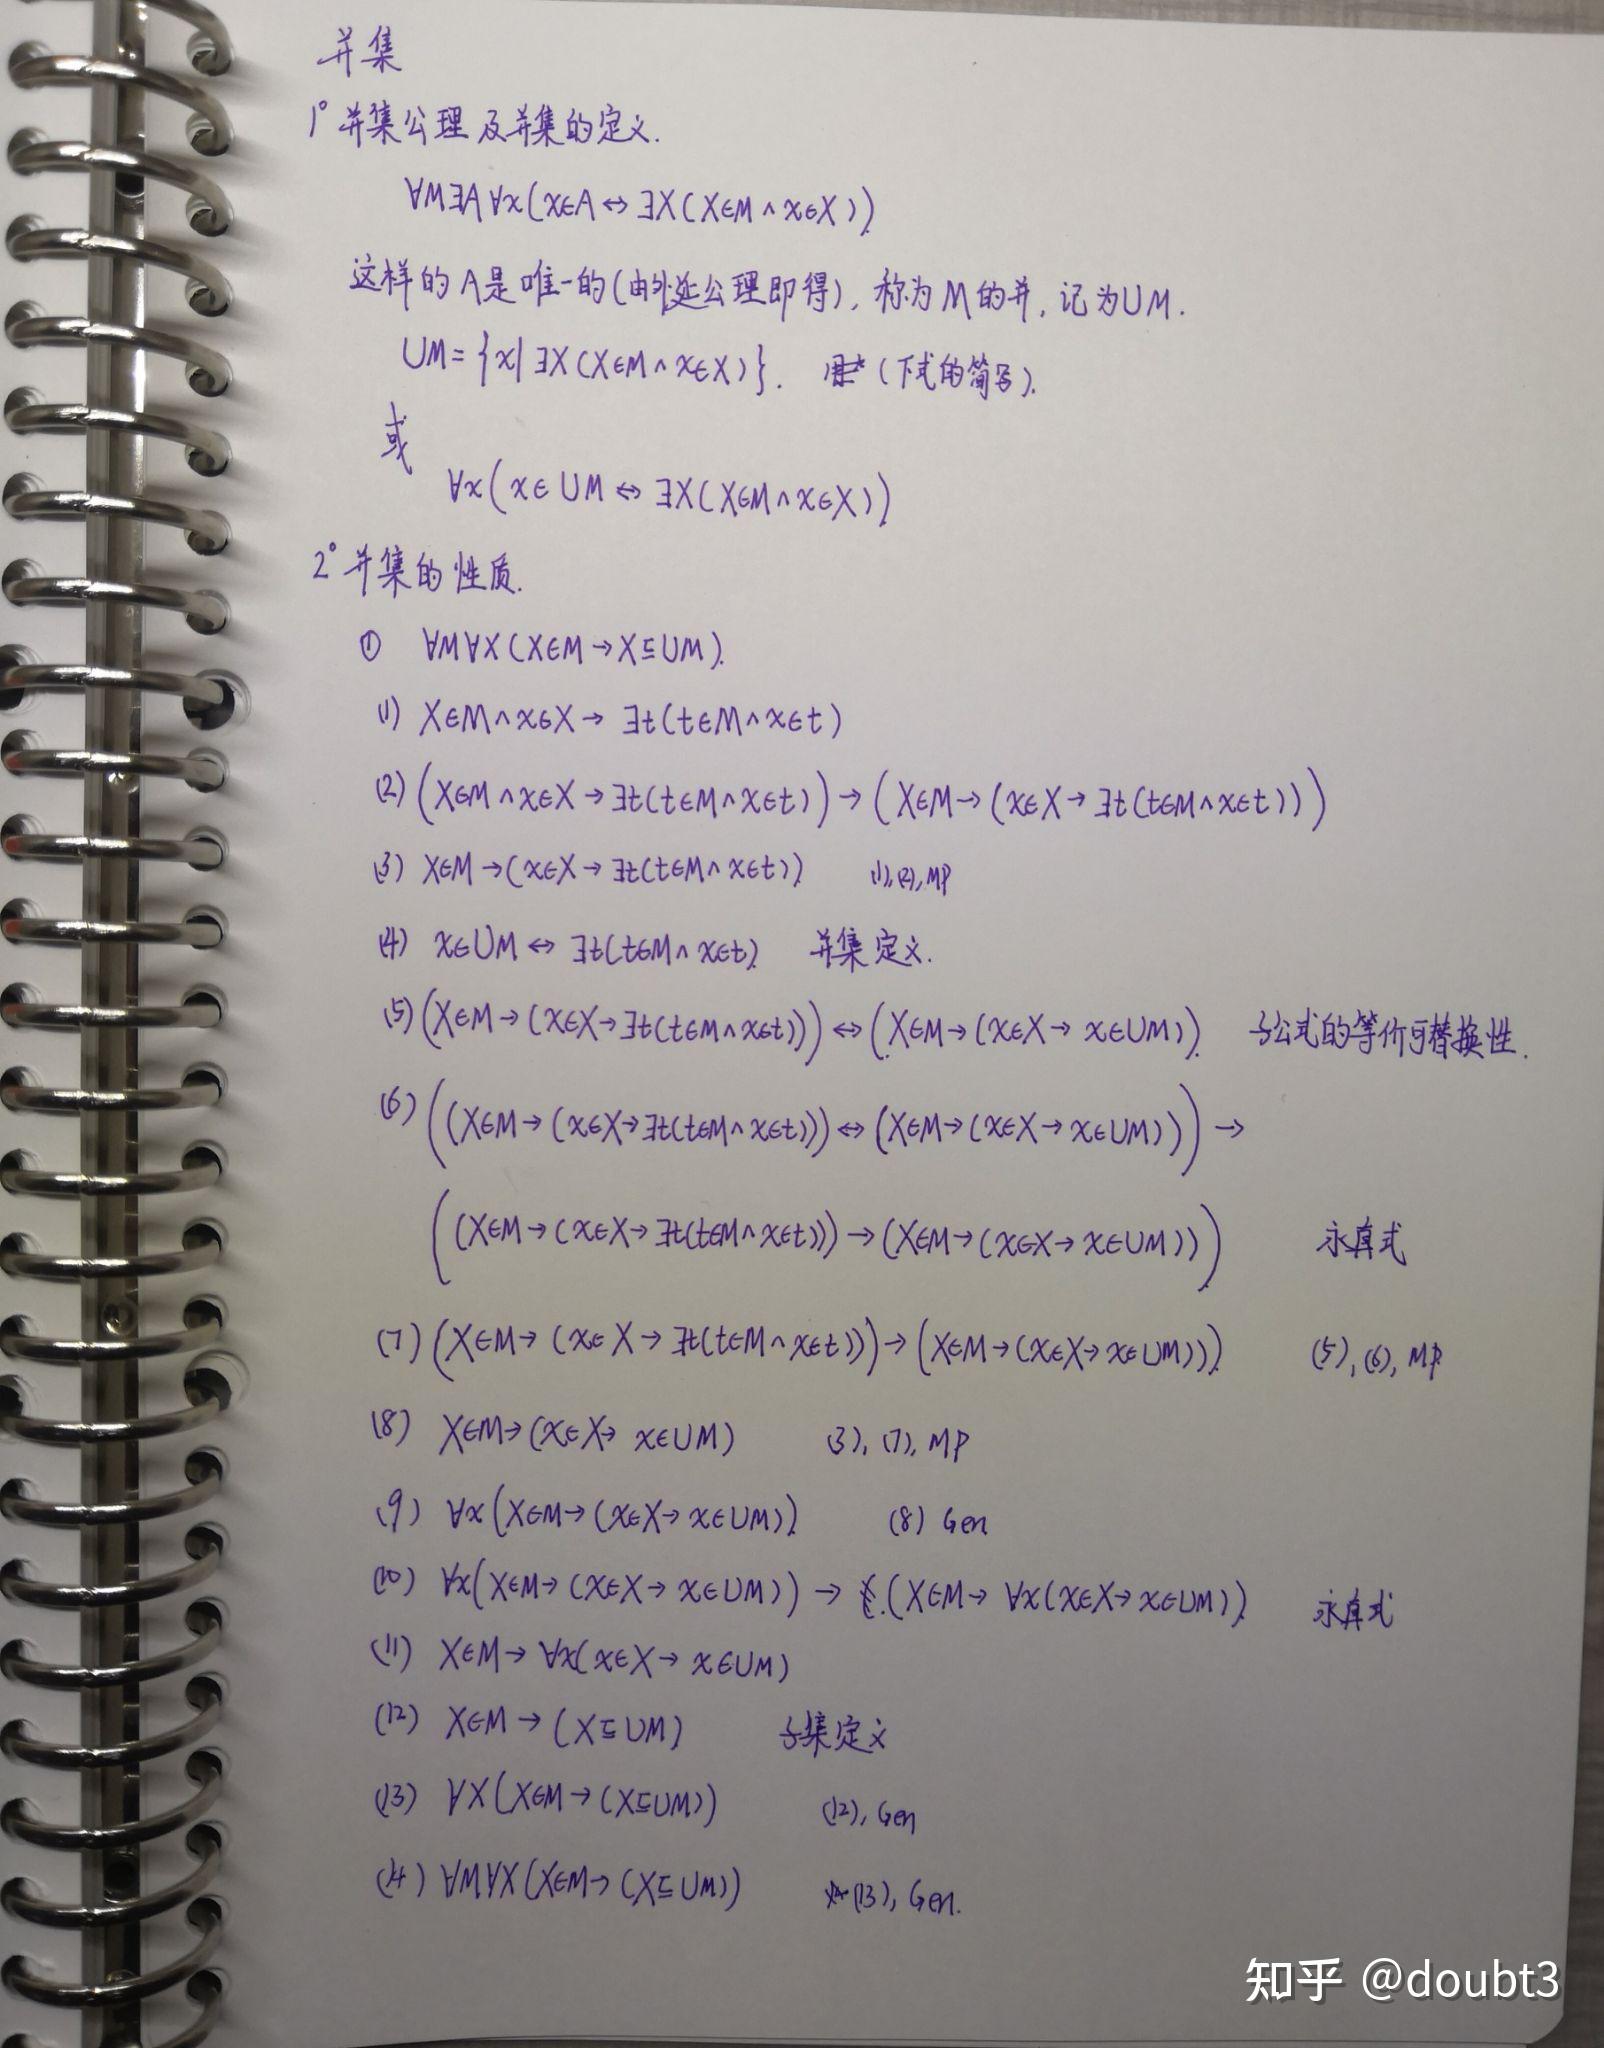 并集
1° 并集公理及并集的定义.
∀M∃A∀x(x∈A↔∃X(X∈M∧x∈X)).
这样的A是唯一的(由外延公理即得), 称为M的并, 记为∪M.
∪M={x|∃X(X∈M∧x∈X)}. (下式的简写).
或
∀x(x∈∪M↔∃X(X∈M∧x∈X))
2° 并集的性质.
① ∀M∀X(X∈M→X⊆∪M).
(1) X∈M∧x∈X→∃t(t∈M∧x∈t)
(2) (X∈M∧x∈X→∃t(t∈M∧x∈t))→(X∈M→(x∈X→∃t(t∈M∧x∈t)))
(3) X∈M→(x∈X→∃t(t∈M∧x∈t)) (1),(2),MP
(4) x∈∪M↔∃t(t∈M∧x∈t). 并集定义.
(5) (X∈M→(x∈X→∃t(t∈M∧x∈t)))↔(X∈M→(x∈X→x∈∪M)). 子公式的等价可替换性.
(6) ((X∈M→(x∈X→∃t(t∈M∧x∈t)))↔(X∈M→(x∈X→x∈∪M)))→
((X∈M→(x∈X→∃t(t∈M∧x∈t)))→(X∈M→(x∈X→x∈∪M))) 永真式
(7) (X∈M→(x∈X→∃t(t∈M∧x∈t)))→(X∈M→(x∈X→x∈∪M)). (5),(6),MP
(8) X∈M→(x∈X→x∈∪M) (3),(7),MP
(9) ∀x(X∈M→(x∈X→x∈∪M)). (8) Gen
(10) ∀x(X∈M→(x∈X→x∈∪M))→(X∈M→∀x(x∈X→x∈∪M)). 永真式
(11) X∈M→∀x(x∈X→x∈∪M)
(12) X∈M→(X⊆∪M) 子集定义
(13) ∀X(X∈M→(X⊆∪M)) (12), Gen
(14) ∀M∀X(X∈M→(X⊆∪M)) (13), Gen.
知乎 @doubt3